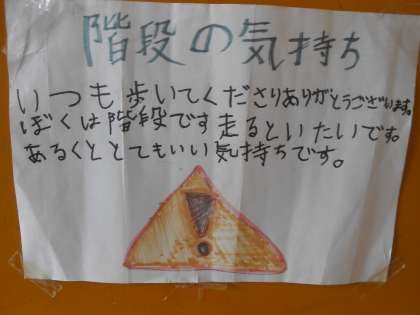 階段の気持ち
いつも歩いてくださりありがとうございます。
ぼくは階段です走るといたいです。
あるくととてもいい気持ちです。